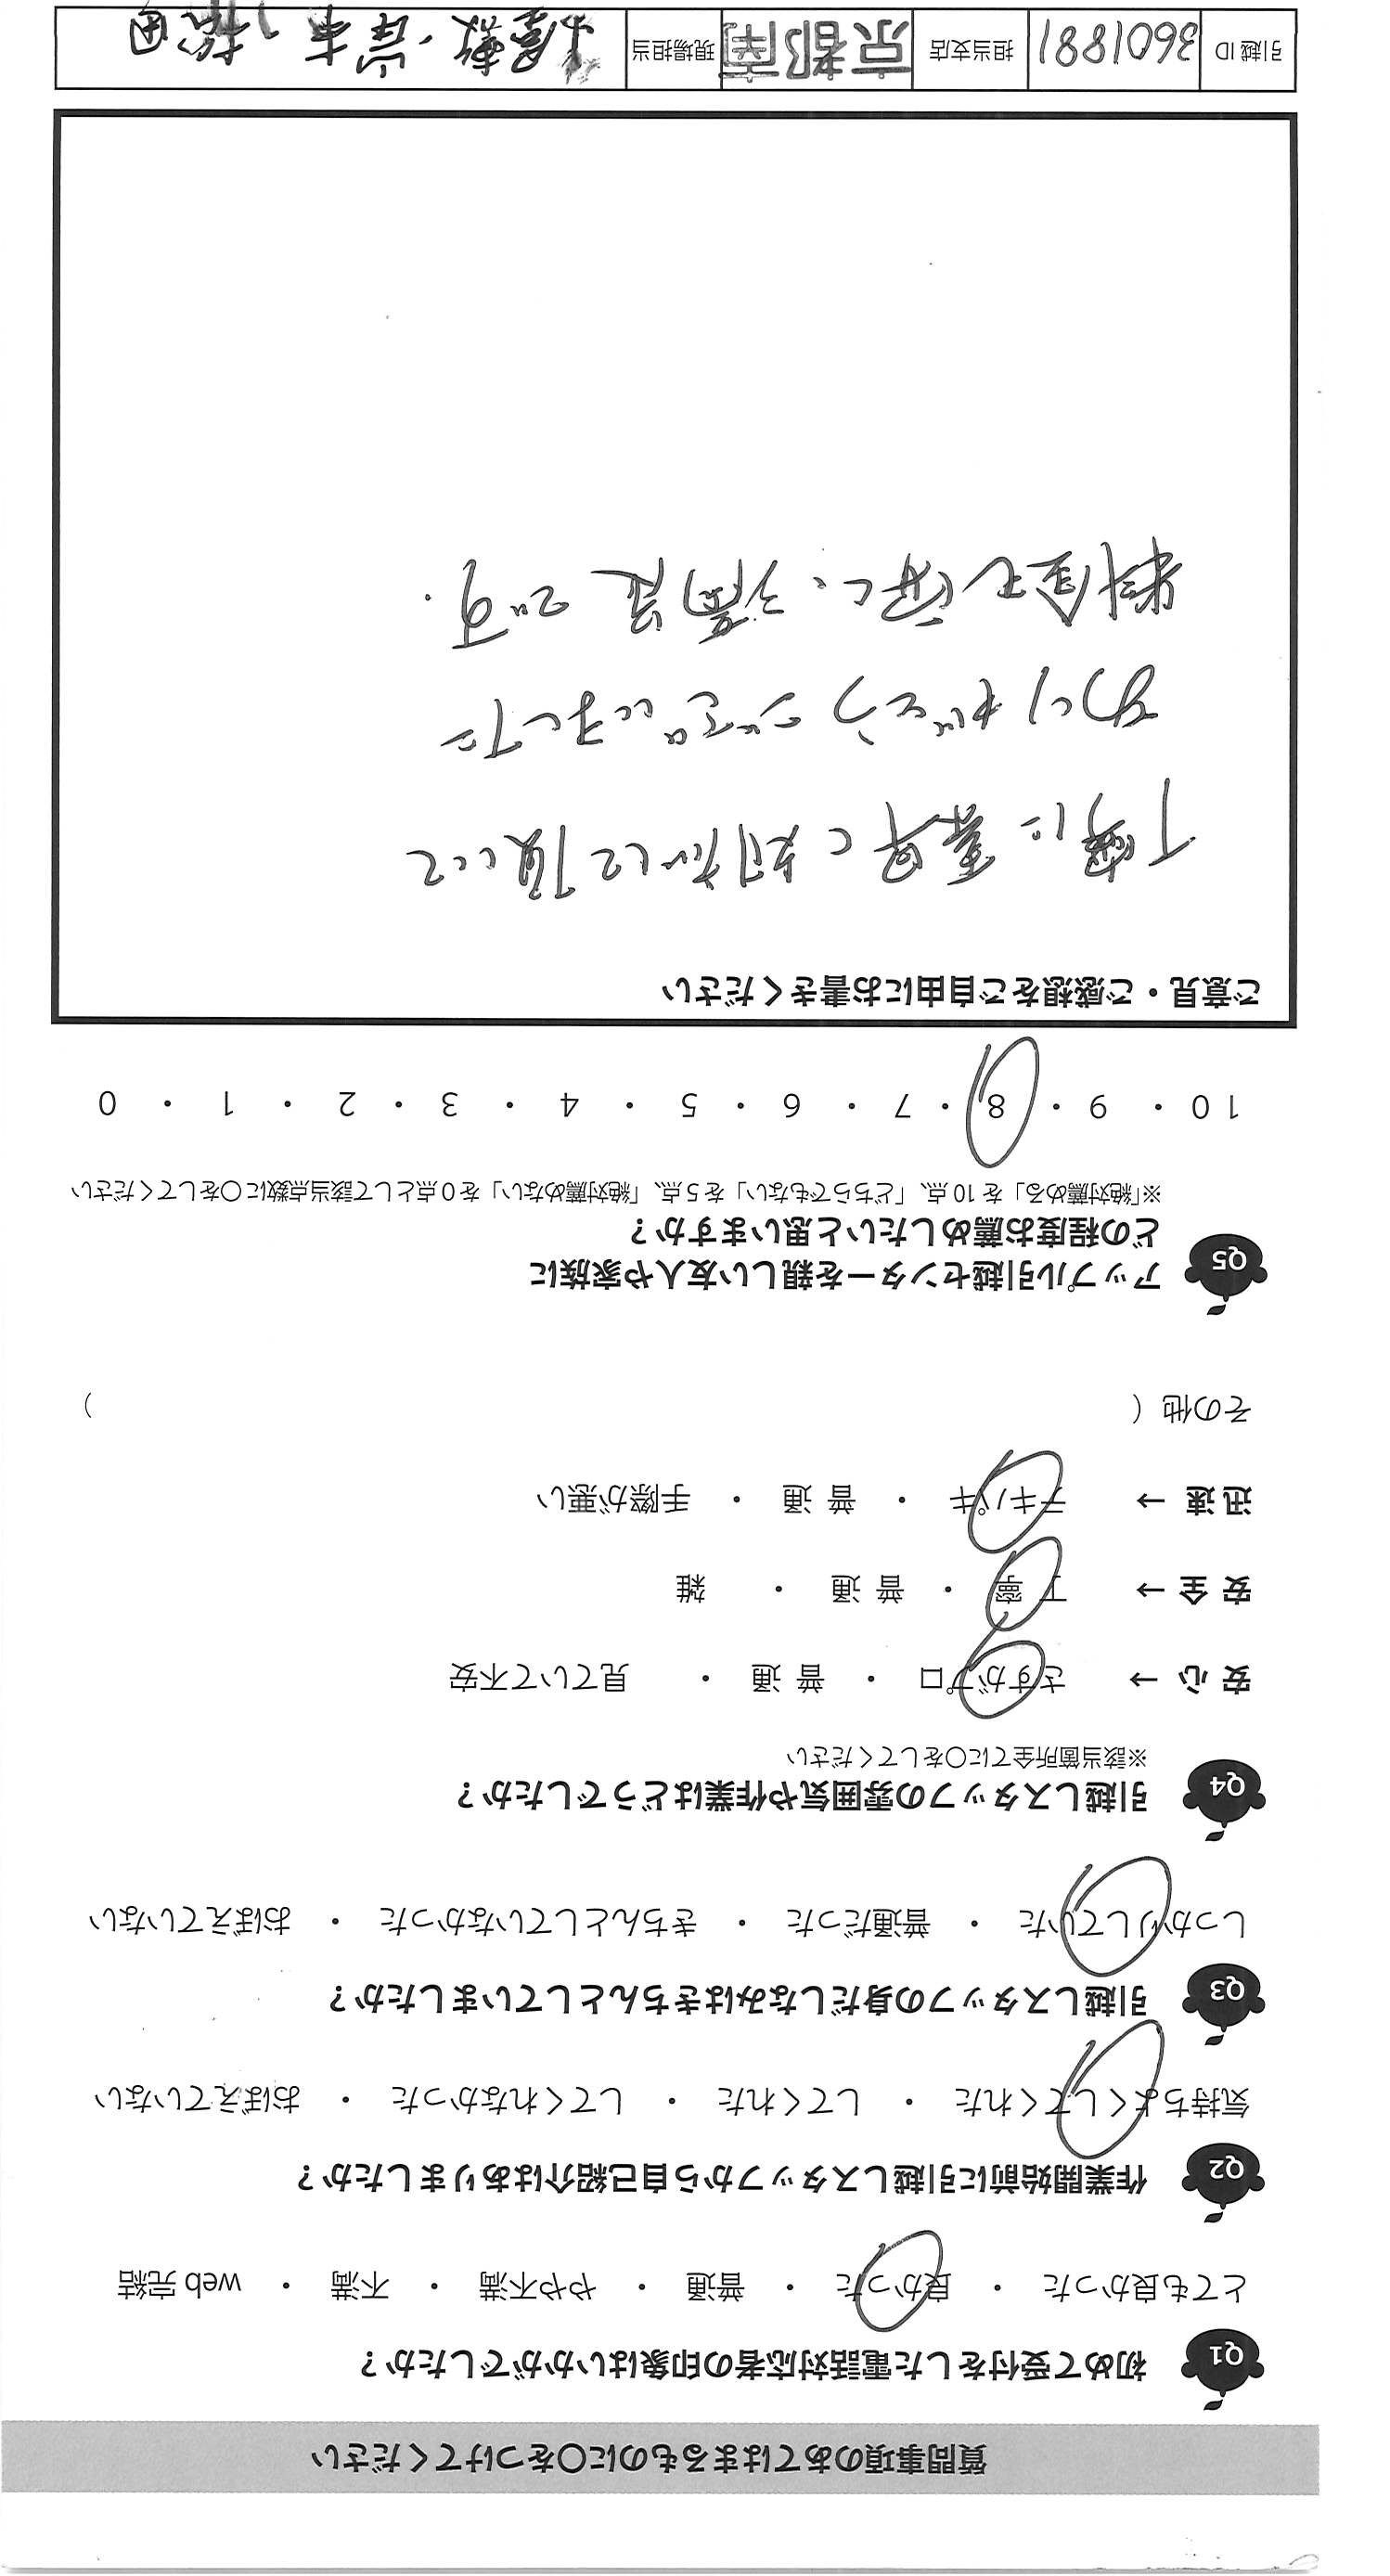 質問事項のあてはまるものに〇をつけてください
Q1 初めて受付をした電話対応者の印象はいかがでしたか？
とても良かった ・ 良かった ・ 普通 ・ やや不満 ・ 不満 ・ web 完結
Q2 作業開始前に引越しスタッフから自己紹介はありましたか？
気持ちよくしてくれた ・ してくれた ・ してくれなかった ・ おぼえていない
Q3 引越しスタッフの身だしなみはきちんとしていましたか？
しっかりしていた ・ 普通だった ・ きちんとしていなかった ・ おぼえていない
Q4 引越しスタッフの雰囲気や作業はどうでしたか？
※該当箇所全てに〇をしてください
安 心 → さすがプロ ・ 普 通 ・ 見ていて不安
安 全 → 丁 寧 ・ 普 通 ・ 雑
迅 速 → テキパキ ・ 普 通 ・ 手際が悪い
その他（ ）
Q5 アップル引越センターを親しい友人や家族に
どの程度お薦めしたいと思いますか？
※「絶対薦める」を 10 点、「どちらでもない」を 5 点、「絶対薦めない」を 0 点として該当点数に〇をしてください
10 ・ 9 ・ 8 ・ 7 ・ 6 ・ 5 ・ 4 ・ 3 ・ 2 ・ 1 ・ 0
ご意見・ご感想をご自由にお書きください
丁寧に素早く対応して頂いて
ありがとうございました
料金も安く、満足です。
引越 ID 3601881 担当支店 京都南 現場担当 岸本 松田